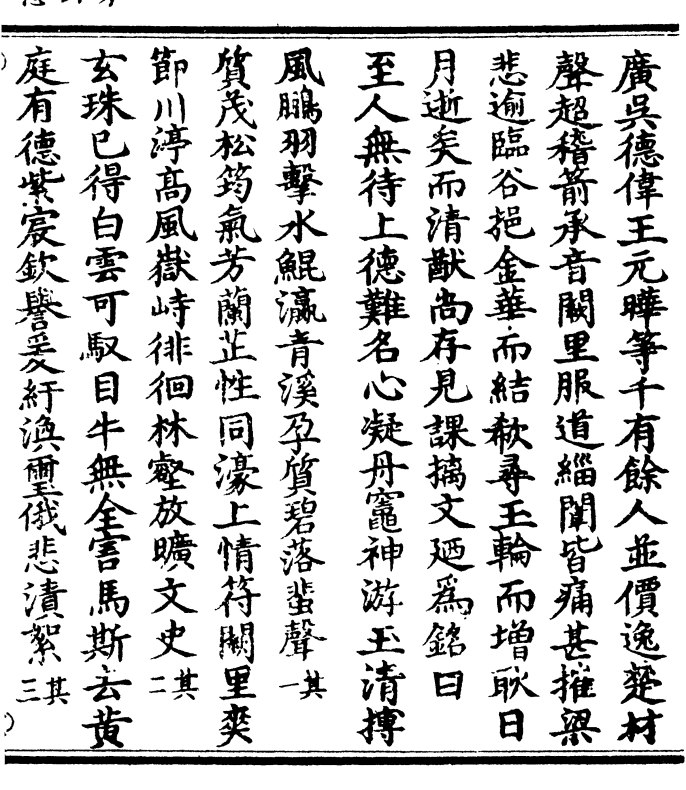 廣吳德偉王元曄等千有餘人並價逸楚材
聲超稽箭承音闕里服道緇闈皆痛甚摧梁
悲逾臨谷挹金華而結欷尋玉輪而增耿日
月逝矣而清猷尚存見課摛文廼為銘曰
至人無待上德難名心凝丹竈神游玉清摶
風鵬羽擊水鯤瀛青溪孕質碧落蜚聲其一
質茂松筠氣芳蘭芷性同濠上情符闕里奕
節川渟高風嶽峙徘徊林壑放曠文史其二
玄珠已得白雲可馭目牛無全害馬斯去黃
庭有德紫宸欽譽爰紆渙璽俄悲漬絮其三